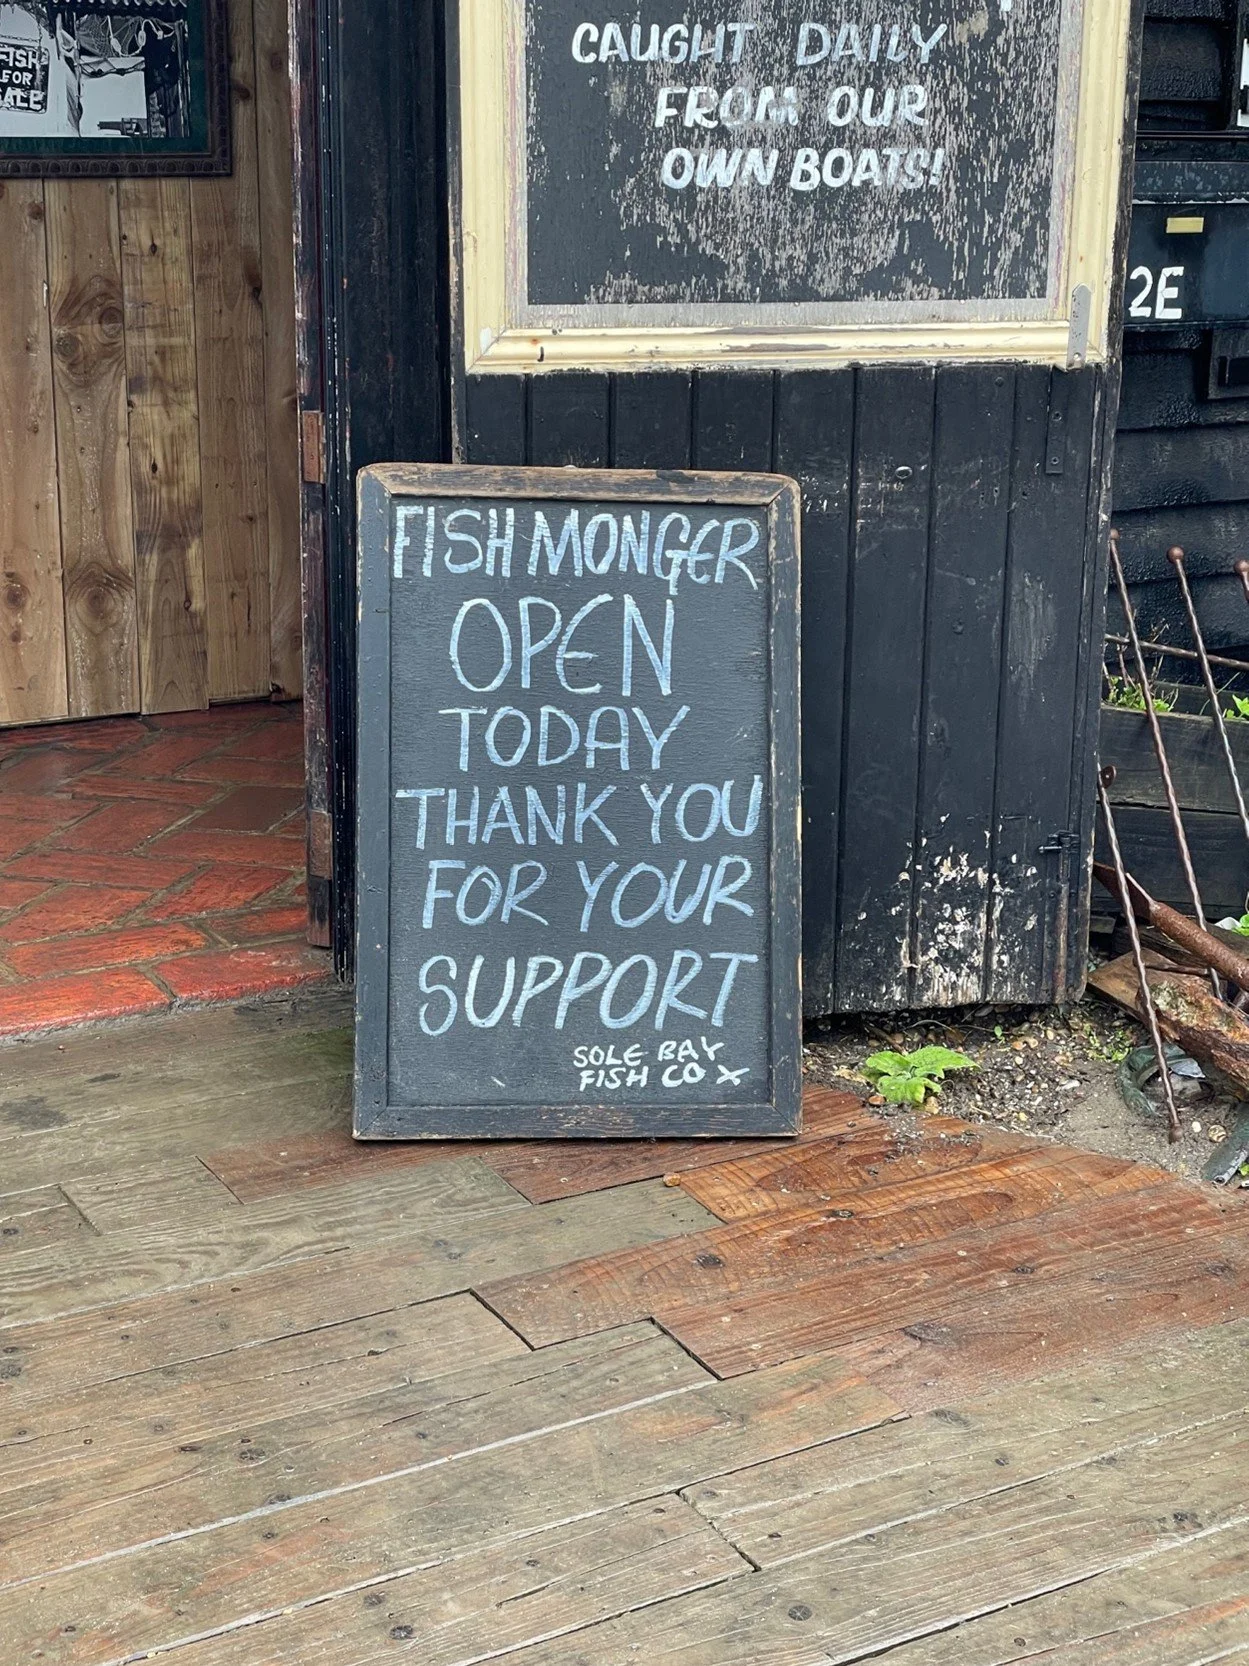 FISH
FOR
SALE
CAUGHT DAILY
FROM OUR
OWN BOATS!
2E
FISHMONGER
OPEN
TODAY
THANK YOU
FOR YOUR
SUPPORT
SOLE BAY
FISH CO X